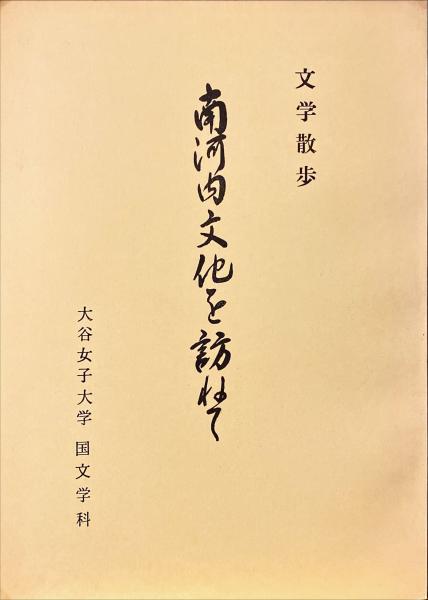 文学散歩
南河内文化を訪ねて
大谷女子大学 国文学科